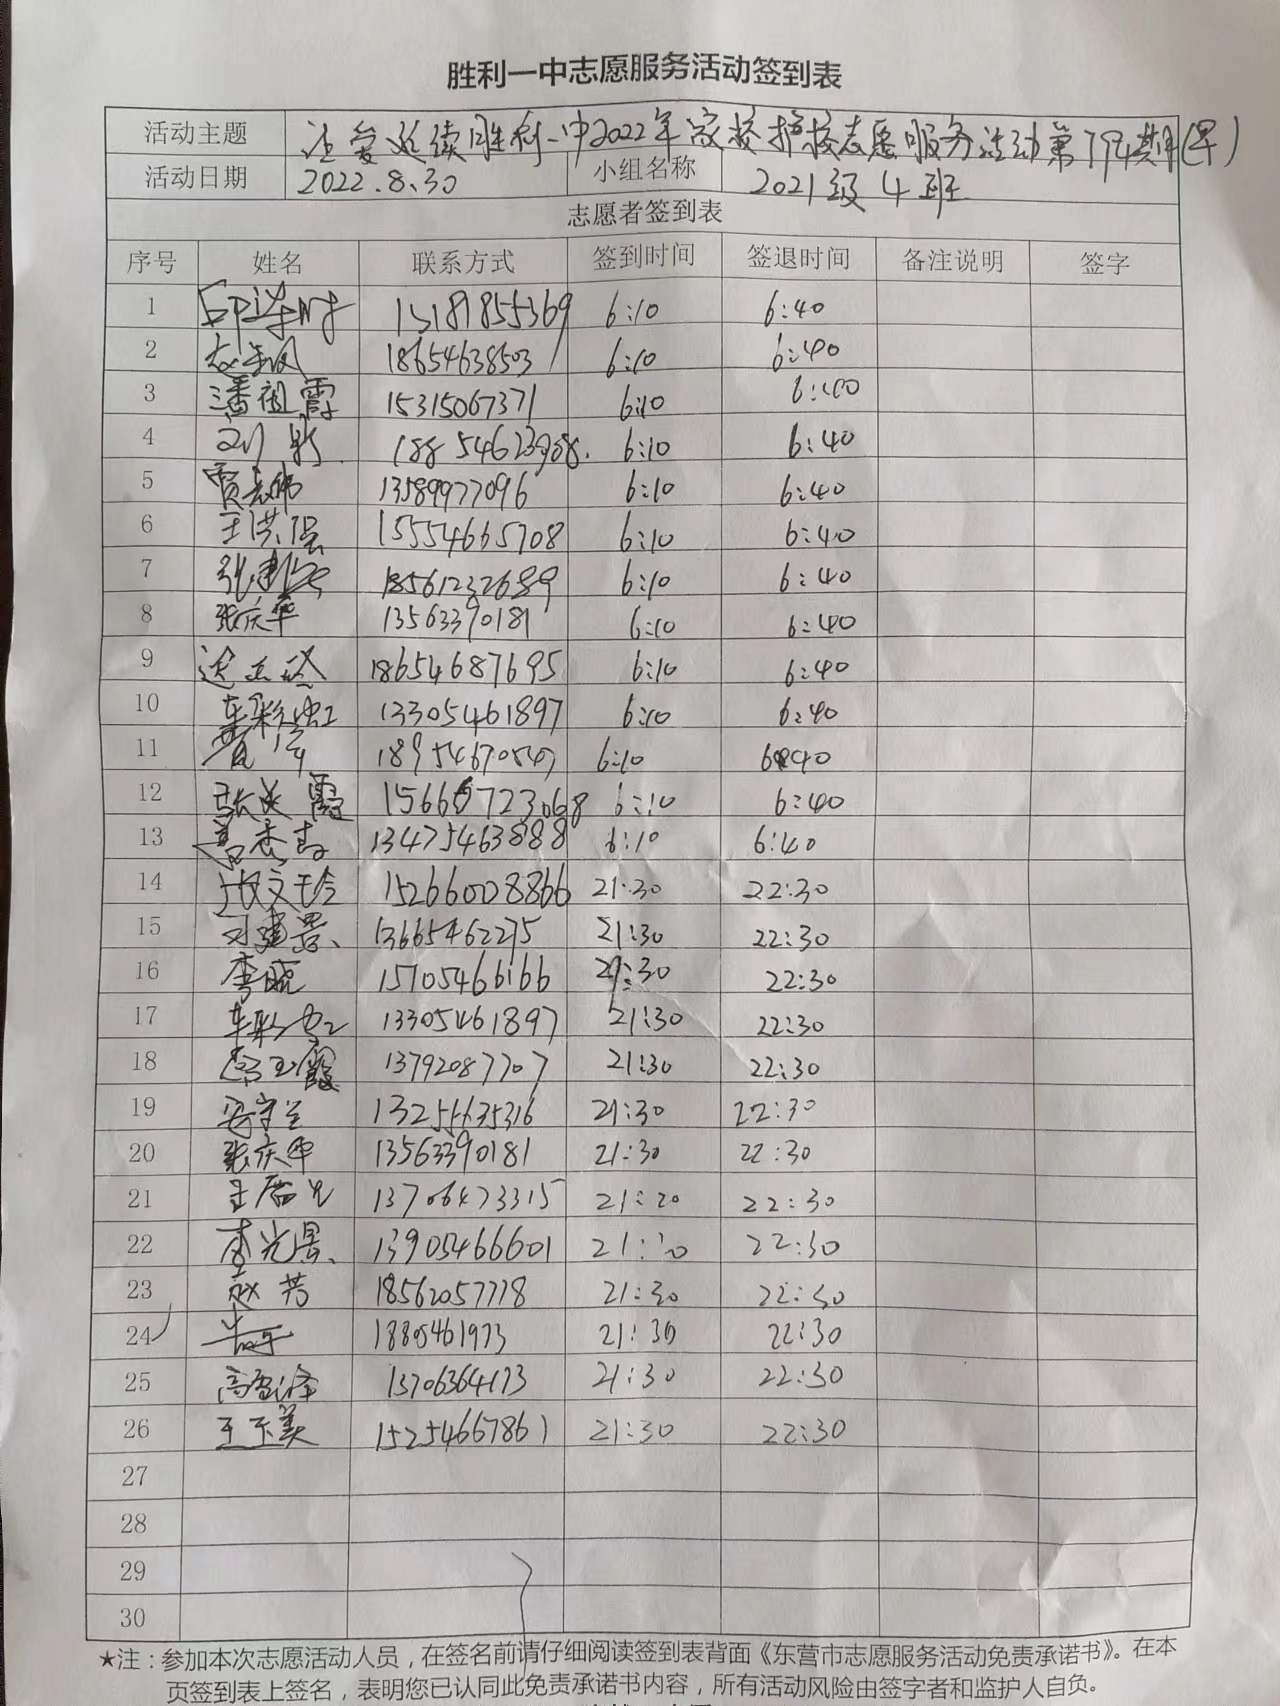 胜利一中志愿服务活动签到表
活动主题 让爱延续胜利一中2022年家校护校志愿服务活动第 期(早)
活动日期 2022.8.30 小组名称 2021级4班
志愿者签到表
序号 姓名 联系方式 签到时间 签退时间 备注说明 签字
1 15181855369 6:10 6:40
2 18654638503 6:10 6:40
3 潘祖霞 15315067371 6:10 6:40
4 6:10 6:40
5 贾志伟 13589977096 6:10 6:40
6 王洪强 15554665708 6:10 6:40
7 18561232689 6:10 6:40
8 张庆华 13563390181 6:10 6:40
9 18654687695 6:10 6:40
10 车彩虹 13305461897 6:10 6:40
11 6:10 6:40
12 6:10 6:40
13 13475463888 6:10 6:40
14 张文玲 15266008866 21:30 22:30
15 13665462275 21:30 22:30
16 李晓 15705466166 21:30 22:30
17 车彩虹 13305461897 21:30 22:30
18 13792087707 21:30 22:30
19 安守兰 13255635316 21:30 22:30
20 张庆华 13563390181 21:30 22:30
21 13706473315 22:30
22 李光景 13905466601 22:30
23 赵芳 18562057778 21:30 22:30
24 1880461973 21:30 22:30
25 高雪泽 13706364173 21:30 22:30
26 王玉美 15254667861 21:30 22:30
27
28
29
30
★注：参加本次志愿活动人员，在签名前请仔细阅读签到表背面《东营市志愿服务活动免责承诺书》。在本
页签到表上签名，表明您已认同此免责承诺书内容，所有活动风险由签字者和监护人自负。